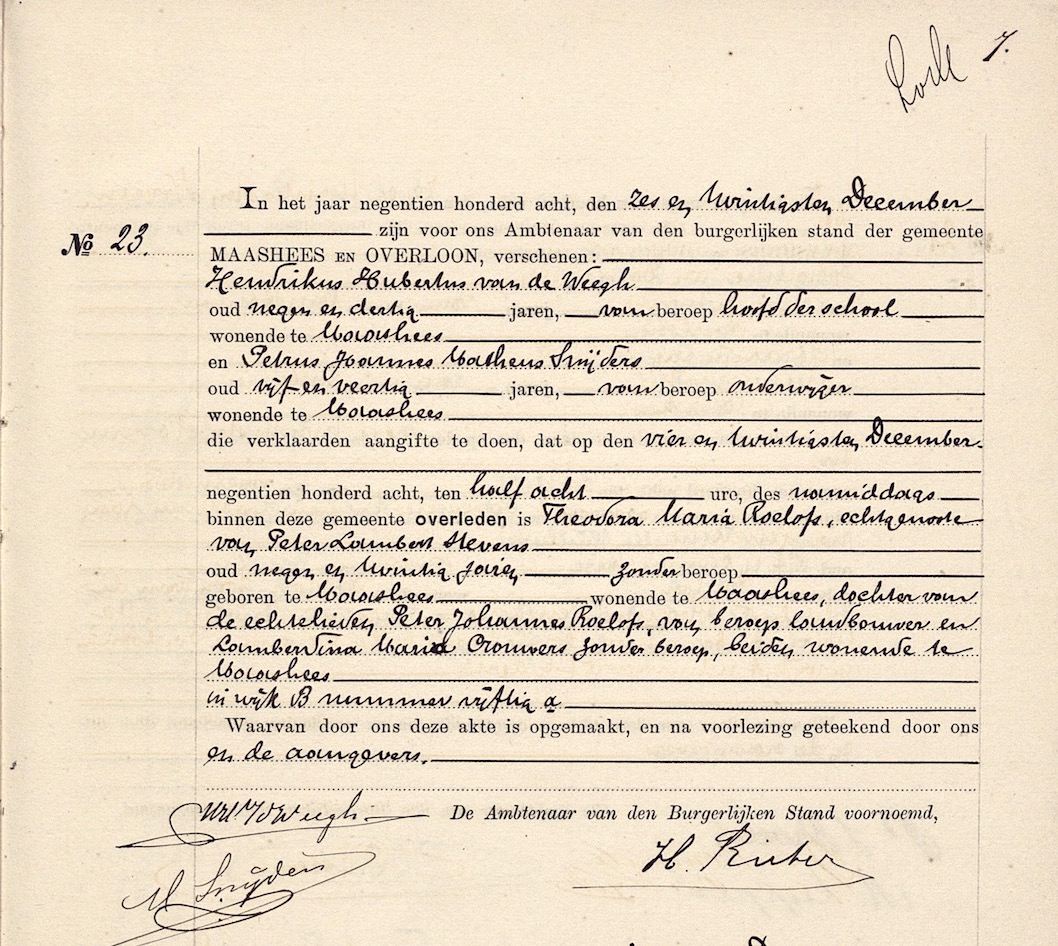 7.
In het jaar negentien honderd acht, den zes en twintigsten December
zijn voor ons Ambtenaar van den burgerlijken stand der gemeente
No 23.
MAASHEES EN OVERLOON, verschenen:
Hendrikus Hubertus van de Weegh
oud negen en dertig jaren, van beroep hoofd der school
wonende te Maashees
en Petrus Joannes Matheus Snijders
oud vijf en veertig jaren, van beroep onderwijzer
wonende te Maashees
die verklaarden aangifte te doen, dat op den vier en twintigsten December
negentien honderd acht, ten half acht ure, des namiddags
binnen deze gemeente overleden is Theodora Maria Roelofs, echtgenoote
van Peter Lambert Stevens
oud negen en twintig jaren zonder beroep
geboren te Maashees wonende te Maashees, dochter van
de echtelieden Peter Johannes Roelofs, van beroep landbouwer en
Lambertina Maria Crouwers zonder beroep, beiden wonende te
Maashees
in wijk B nummer vijftig a
Waarvan door ons deze akte is opgemaakt, en na voorlezing geteekend door ons
en de aangevers.
De Ambtenaar van den Burgerlijken Stand voornoemd,
vdWeegh
H.
M Snijders